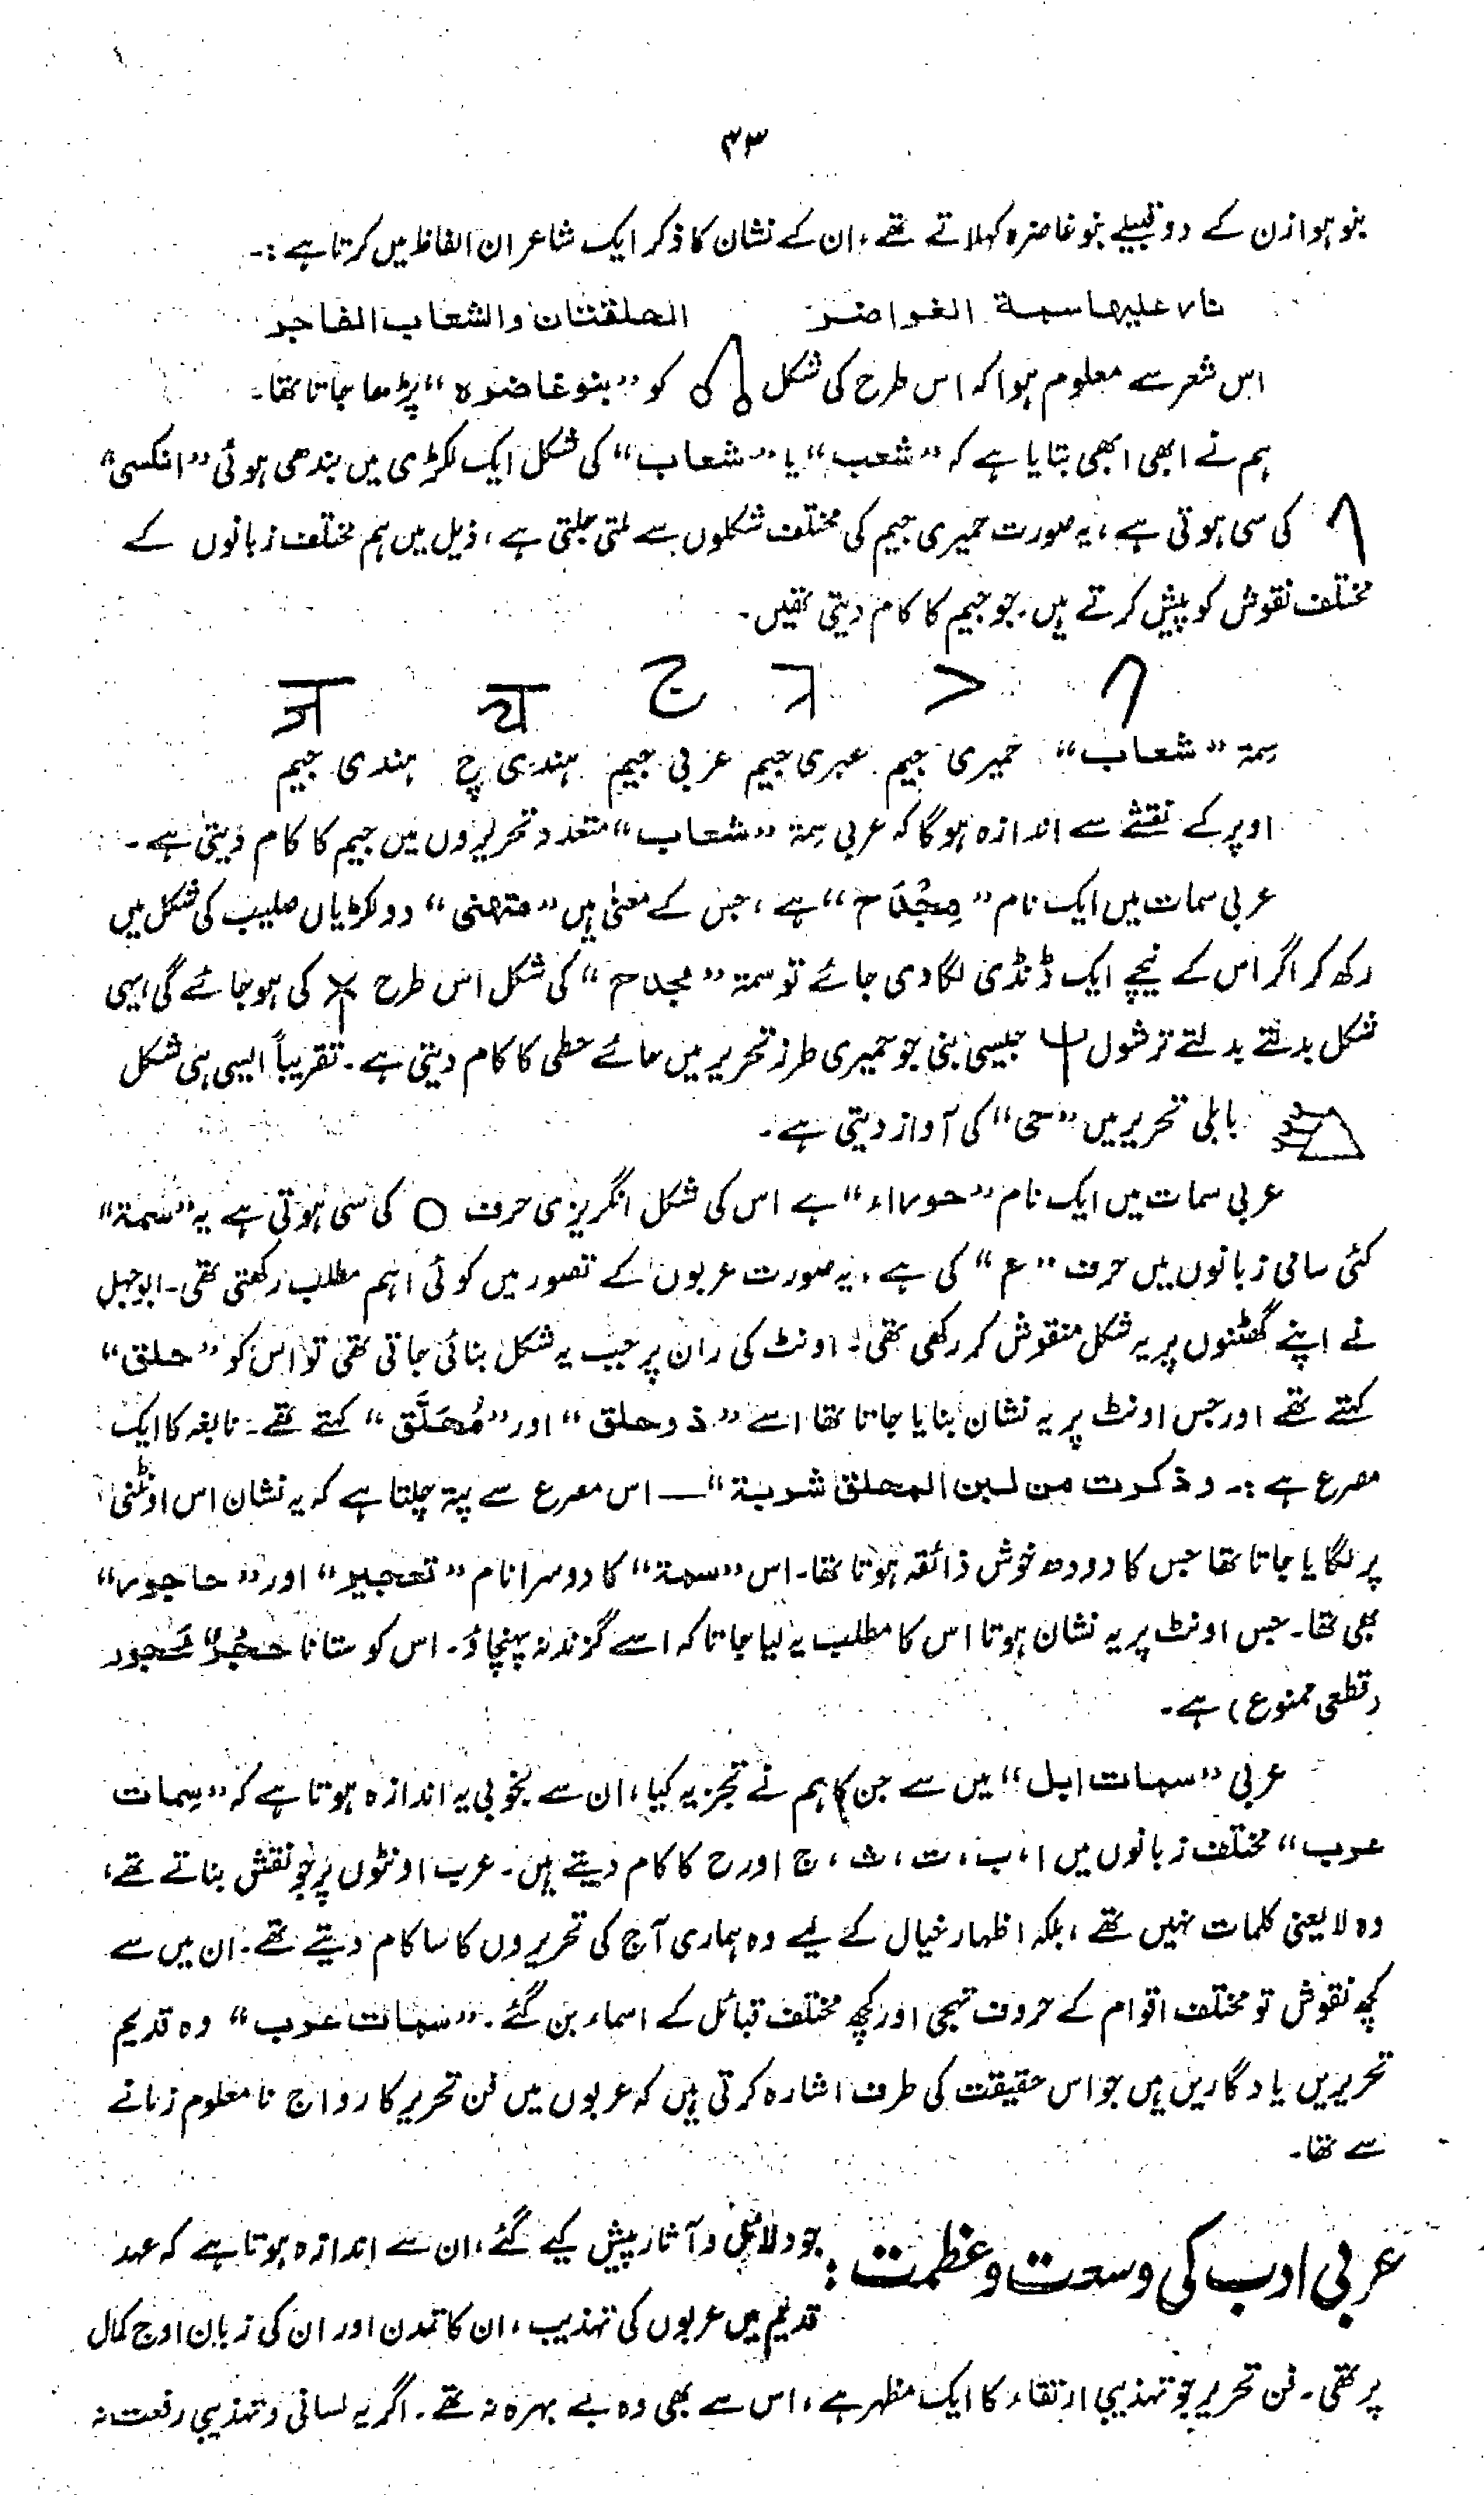 ۳۳
بنو ہوازن کے دو قبیلے بنو غاضرہ کہلاتے تھے، ان کے نشان کا ذکر ایک شاعر ان الفاظ میں کرتا ہے :۔
نار علیها سمة الغواضر الحلقتان والشعاب الفاجر
اس شعر سے معلوم ہوا کہ اس طرح کی شکل کو "بنو غاضرہ" پڑھا جاتا تھا۔
ہم نے ابھی ابھی بتایا ہے کہ "شعب" یا "شعاب" کی شکل ایک لکڑی میں بندھی ہوئی "انکسی"
کی سی ہوتی ہے، یہ صورت حمیری جیم کی مختلف شکلوں سے ملتی جلتی ہے، ذیل میں ہم مختلف زبانوں کے
مختلف نقوش کو پیش کرتے ہیں۔ جو جیم کا کام دیتی تھیں۔
ج च ज
سمۃ "شعاب" حمیری جیم عبری جیم عربی جیم ہندی چ ہندی جیم
اوپر کے نقشے سے اندازہ ہوگا کہ عربی سمۃ "شعاب" متعدد تحریروں میں جیم کا کام دیتی ہے۔
عربی سمات میں ایک نام "مِجْدَاح" ہے، جس کے معنیٰ ہیں "متھنی" دو لکڑیاں صلیب کی شکل میں
رکھ کر اگر اس کے نیچے ایک ڈنڈی لگا دی جائے تو سمۃ "مجداح" کی شکل اس طرح کی ہو جائے گی یہی
شکل بدلتے بدلتے ترشول جیسی بنی جو حمیری طرز تحریر میں حائے حطی کا کام دیتی ہے۔ تقریباً ایسی ہی شکل
بابلی تحریر میں "حی" کی آواز دیتی ہے۔
عربی سمات میں ایک نام "حوراء" ہے اس کی شکل انگریزی حرف O کی سی ہوتی ہے یہ "سمۃ"
کئی سامی زبانوں میں حرف "ع" کی ہے، یہ صورت عربوں کے تصور میں کوئی اہم مطلب رکھتی تھی۔ ابو جہل
نے اپنے گھٹنوں پر یہ شکل منقوش کر رکھی تھی۔ اونٹ کی ران پر جب یہ شکل بنائی جاتی تھی تو اس کو "حلق"
کہتے تھے اور جس اونٹ پر یہ نشان بنایا جاتا تھا اسے "ذو حلق" اور "مُحَلَّق" کہتے تھے۔ نابغہ کا ایک
مصرع ہے :۔ وذکرت من لبن المحلق شربة" — اس مصرع سے پتہ چلتا ہے کہ یہ نشان اس اونٹنی
پر لگایا جاتا تھا جس کا دودھ خوش ذائقہ ہوتا تھا۔ اس "سمۃ" کا دوسرا نام "تحجیر" اور "حاجور"
بھی تھا۔ جس اونٹ پر یہ نشان ہوتا اس کا مطلب یہ لیا جاتا کہ اسے گزند نہ پہنچاؤ۔ اس کو ستانا
(قطعی ممنوع) ہے۔
عربی "سمات ابل" میں سے جن کا ہم نے تجزیہ کیا، ان سے بخوبی یہ اندازہ ہوتا ہے کہ "سِمات
عرب" مختلف زبانوں میں ا، ب، ت، ث، ج اور ح کا کام دیتے ہیں۔ عرب اونٹوں پر جو نقش بناتے تھے،
وہ لایعنی کلمات نہیں تھے، بلکہ اظہار خیال کے لیے وہ ہماری آج کی تحریروں کا سا کام دیتے تھے۔ ان میں سے
کچھ نقوش تو مختلف اقوام کے حروف تہجی اور کچھ مختلف قبائل کے اسماء بن گئے۔ "سمات عرب" وہ قدیم
تحریریں یادگاریں ہیں جو اس حقیقت کی طرف اشارہ کرتی ہیں کہ عربوں میں فن تحریر کا رواج نامعلوم زمانے
سے تھا۔
عربی ادب کی وسعت و عظمت: جو دلائل و آثار پیش کیے گئے، ان سے اندازہ ہوتا ہے کہ عہد
قدیم میں عربوں کی تہذیب، ان کا تمدن اور ان کی زبان اوج کمال
پر تھی۔ فن تحریر جو تہذیبی ارتقاء کا ایک مظہر ہے، اس سے بھی وہ بے بہرہ نہ تھے۔ اگر یہ لسانی و تہذیبی رفعت نہ